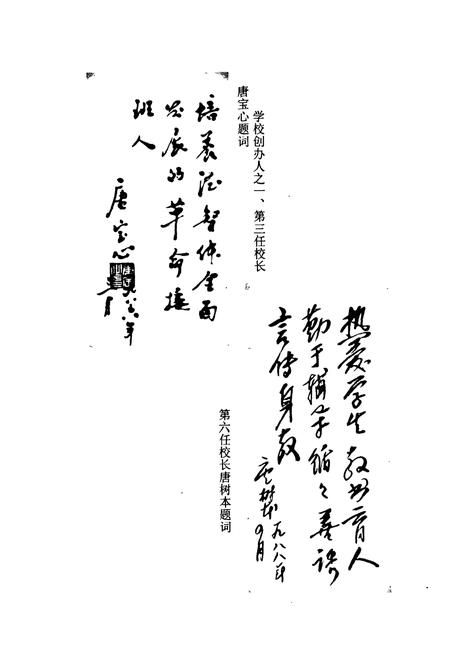 学校创办人之一、第三任校长
唐宝心题词
培养德智体全面
发展的革命接
班人
唐宝心
第六任校长唐树本题词
热爱学生 教书育人
勤于辅导 循々善诱
言传身教
唐树本 一九八八年